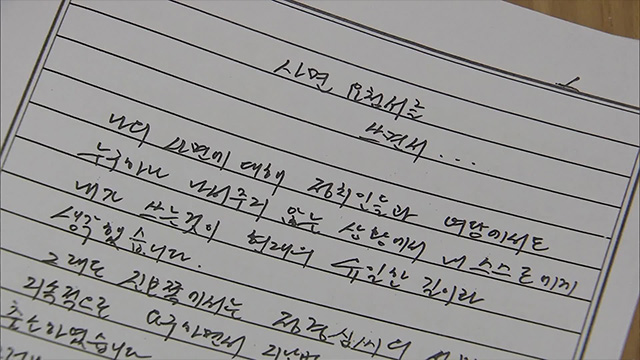 사면 요청서를
쓰면서...
나의 사면에 대해 정치인들과 여당에서도
누구하나 나서주지 않는 상황에서 내 스스로 이지
내가 쓰는것이 현재의 유일한 길이라
생각했습니다.
그래도 진보쪽에서는 정경심씨의
지속적으로 요구하면서 지난번
출소하였습니다